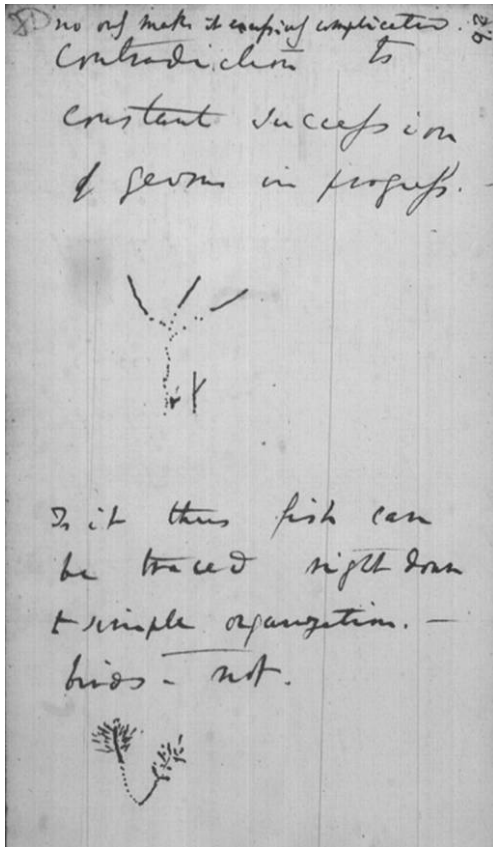 no only makes it excessively complicated.
26
contradiction to
constant succession
of germs in progress. —
Is it thus fish can
be traced right down
to simple organization. —
birds — not.